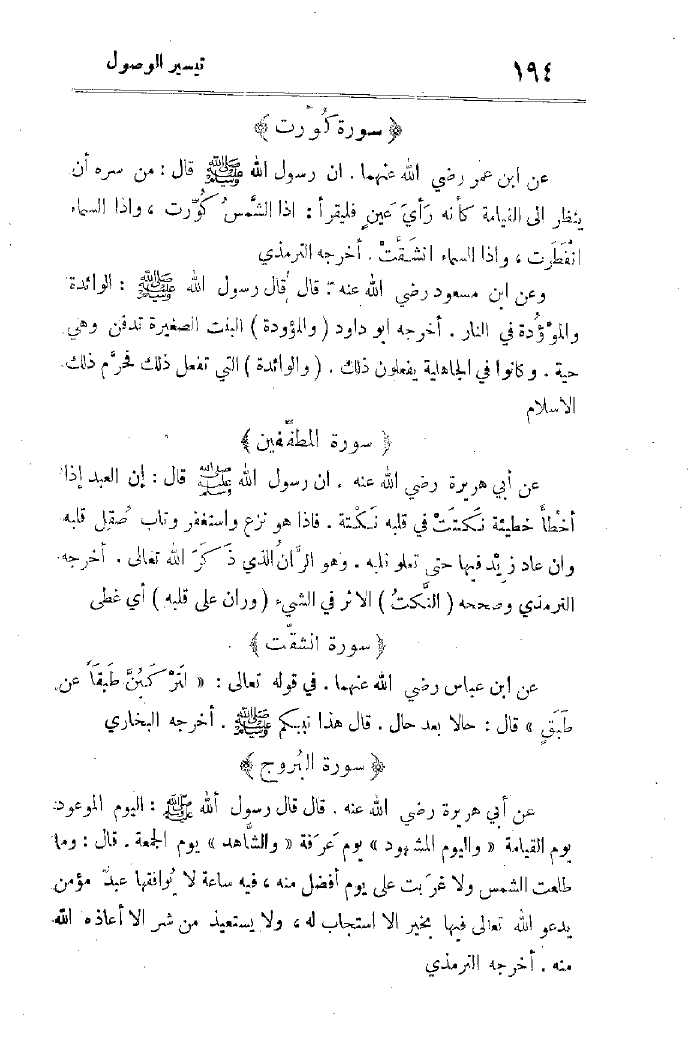 ١٩٤ تيسير الوصول
﴿ سورة كُوّرت ﴾
عن ابن عمر رضي الله عنهما . ان رسول الله ﷺ قال : من سره أن
ينظر الى القيامة كأنه رَأْيَ عَينٍ فليقرأ : اذا الشَّمسُ كُوّرت ، واذا السماء
انْفَطَرت ، واذا السماء انشَقَّتْ . أخرجه الترمذي
وعن ابن مسعود رضي الله عنه : قال قال رسول الله ﷺ : الوائدة
والموْؤُدة في النار . أخرجه ابو داود ( والمؤودة ) البنت الصغيرة تدفن وهي
حية . وكانوا في الجاهلية يفعلون ذلك . ( والوائدة ) التي تفعل ذلك فحرَّم ذلك
الاسلام
﴿ سورة المطفّفين ﴾
عن أبي هريرة رضي الله عنه . ان رسول الله ﷺ قال : إن العبد إذا
أخْطأَ خطيئة نَكَتَتْ في قلبه نَكْتة . فاذا هو نزع واستغفر وتاب صُقِل قلبه
وان عاد زِيْد فيها حتى تعلو قلبه . وهو الرَّانُ الذي ذَكَرَ الله تعالى . أخرجه
الترمذي وصححه ( النَّكتُ ) الاثر في الشيء ( وران على قلبه ) أي غطى
﴿ سورة انشقّت ﴾
عن ابن عباس رضي الله عنهما . في قوله تعالى : « لَتَرْكَبُنَّ طَبَقَاً عن
طَبَقٍ » قال : حالا بعد حال . قال هذا نبيكم ﷺ . أخرجه البخاري
﴿ سورة البُروج ﴾
عن أبي هريرة رضي الله عنه . قال قال رسول الله ﷺ : اليوم الموعود
يوم القيامة « واليوم المشهود » يوم عَرَفة « والشَّاهد » يوم الجمعة . قال : وما
طلعت الشمس ولا غَرَبت على يوم أفضل منه ، فيه ساعة لا يُوافقها عبدٌ مؤمن
يدعو الله تعالى فيها بخير الا استجاب له ، ولا يستعيذ من شر الا أعاذه الله
منه . أخرجه الترمذي